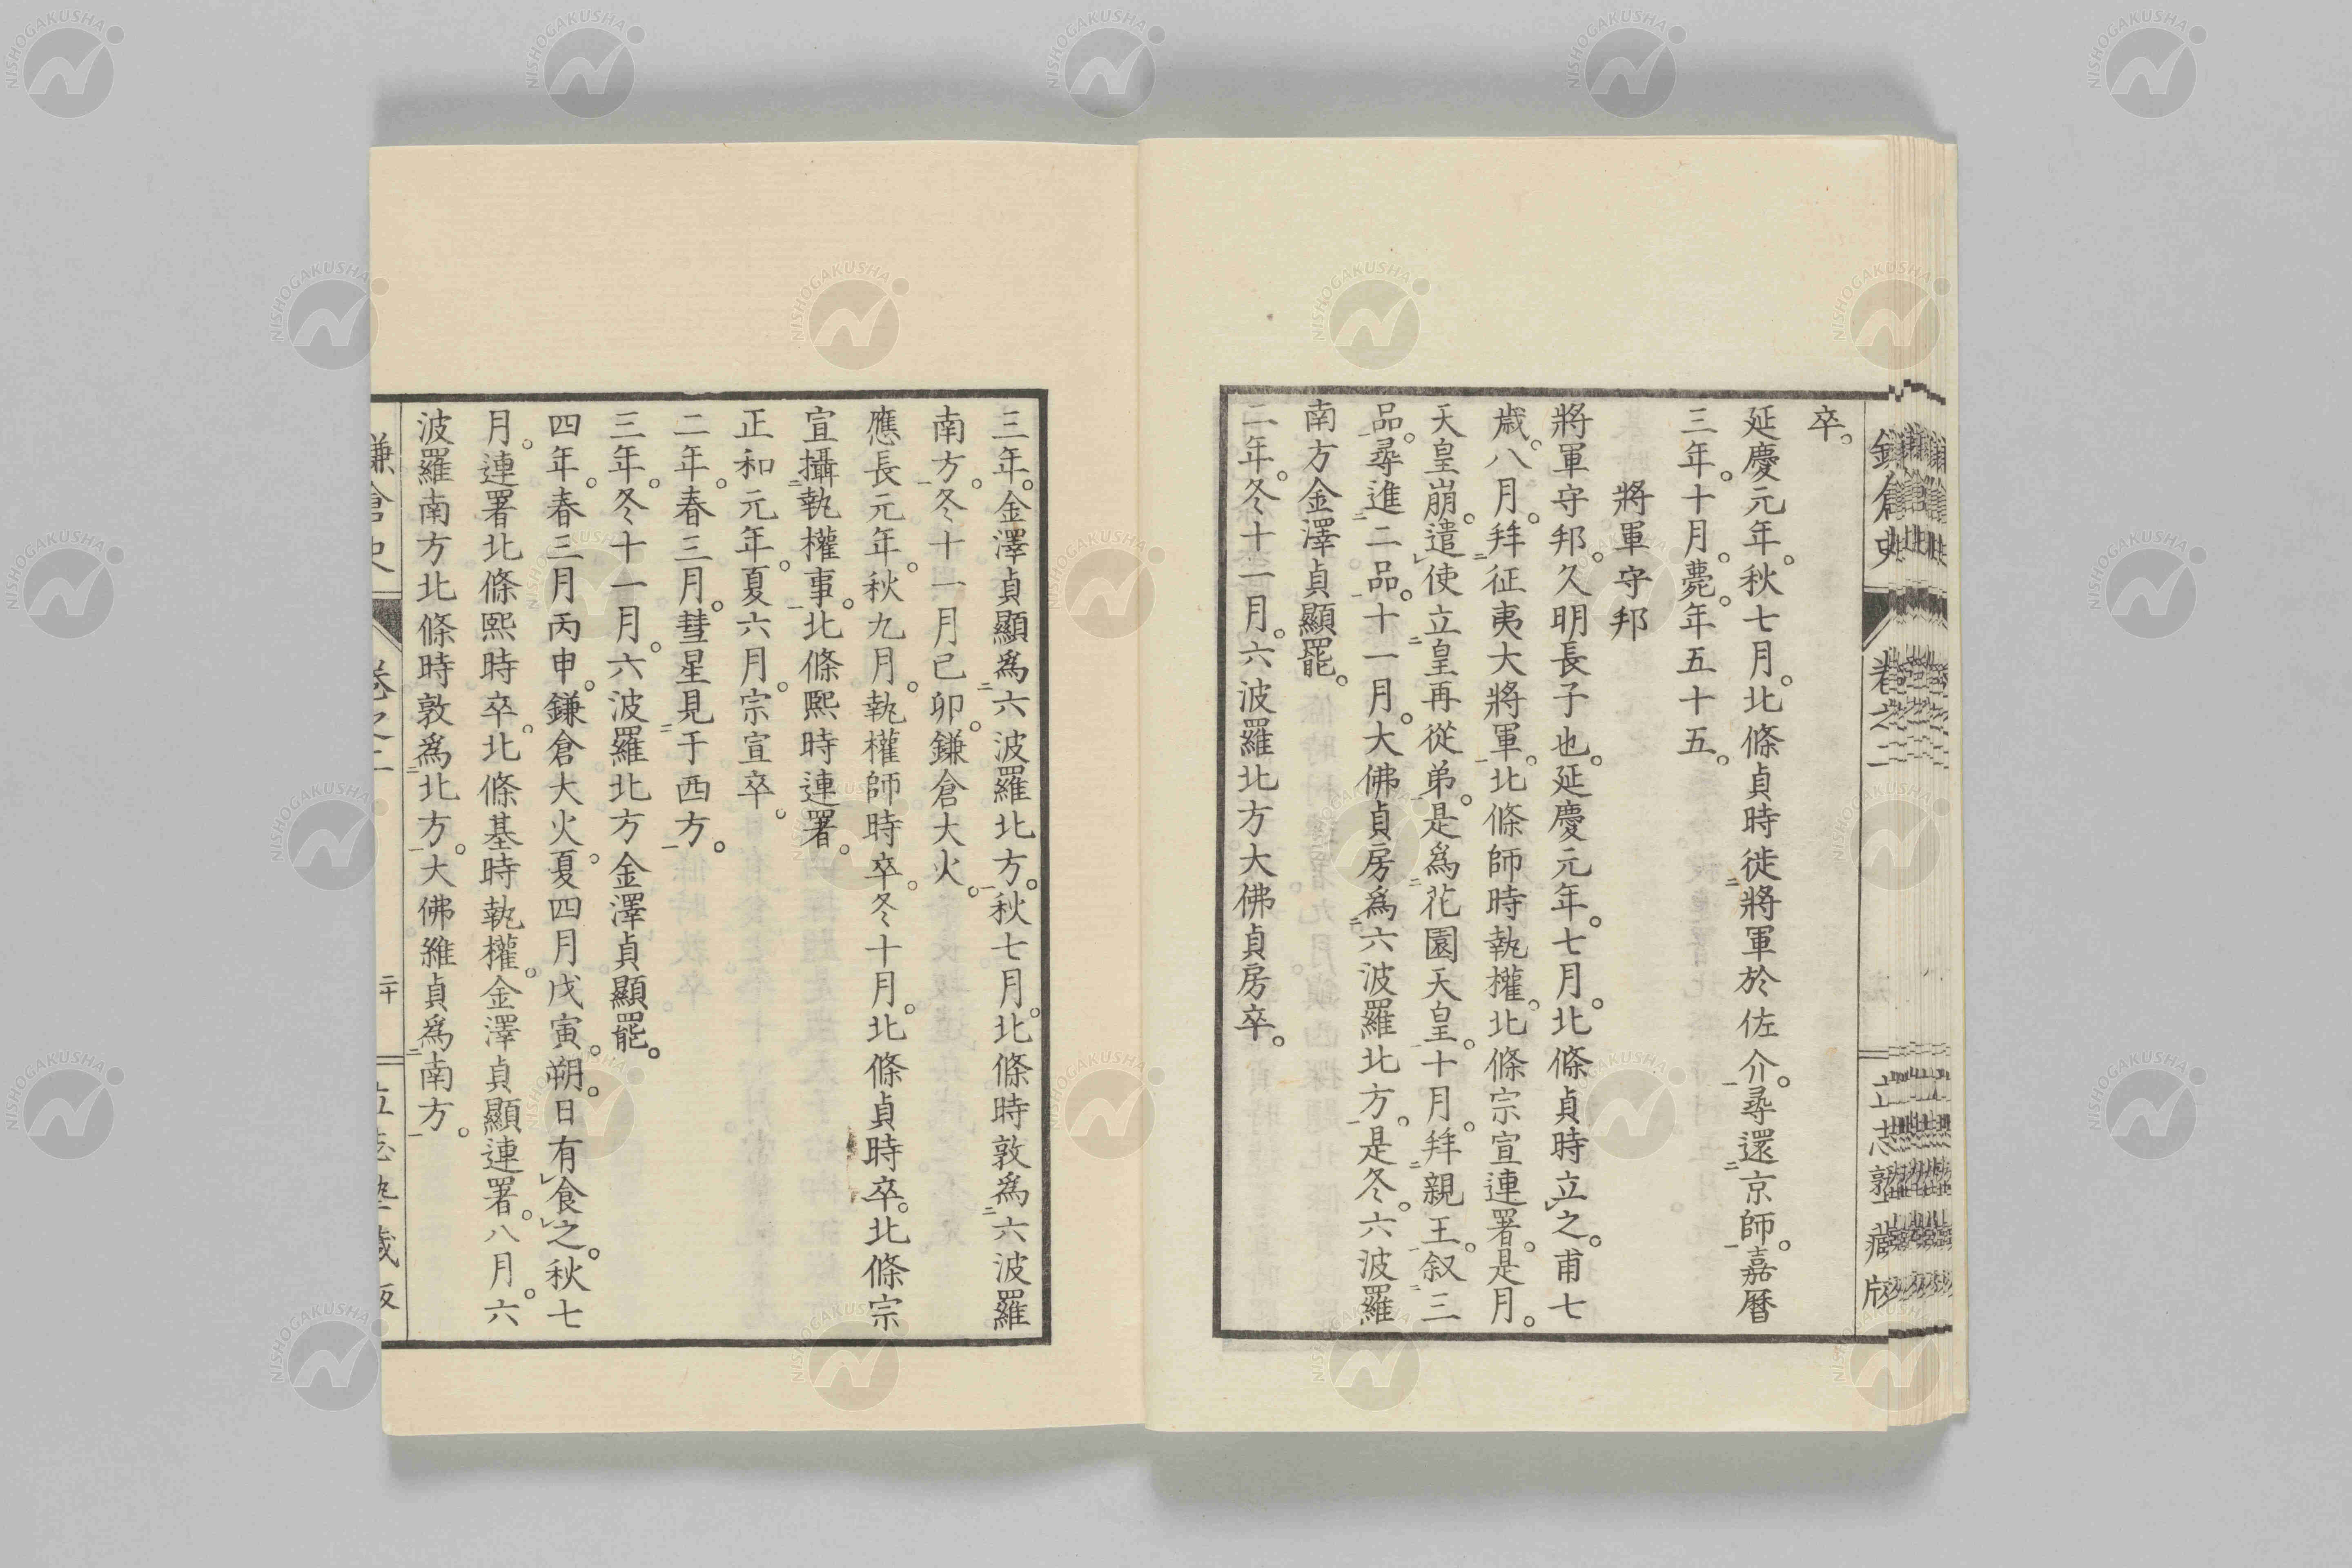 鎌倉史 卷之二 立志塾藏版
卒。
延慶元年。秋七月。北條貞時徙將軍於佐介。尋還京師。嘉曆
三年。十月。薨。年五十五。
將軍守邦
將軍守邦。久明長子也。延慶元年。七月。北條貞時立之。甫七
歲。八月。拜征夷大將軍。北條師時執權。北條宗宣連署。是月。
天皇崩。遣使立皇再從弟。是爲花園天皇。十月。拜親王。叙三
品。尋進二品。十一月。大佛貞房爲六波羅北方。是冬。六波羅
南方金澤貞顯罷。
二年。冬十二月。六波羅北方大佛貞房卒。
三年。金澤貞顯爲六波羅北方。秋七月。北條時敦爲六波羅
南方。冬十一月己卯。鎌倉大火。
應長元年。秋九月。執權師時卒。冬十月。北條貞時卒。北條宗
宣攝執權事。北條熙時連署。
正和元年。夏六月。宗宣卒。
二年。春三月。彗星見于西方。
三年。冬十一月。六波羅北方金澤貞顯罷。
四年。春三月丙申。鎌倉大火。夏四月戊寅。朔。日有食之。秋七
月。連署北條熙時卒。北條基時執權。金澤貞顯連署。八月。六
波羅南方北條時敦爲北方。大佛維貞爲南方。
鎌倉史 卷之二 二十 立志塾藏版
NISHOGAKUSHA